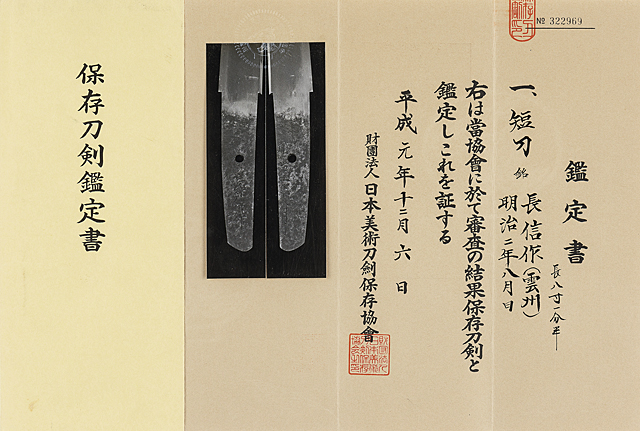 № 322969
鑑定書
長八寸一分半
一、短刀 銘 長信作(雲州)
明治二年八月日
右は當協會に於て審査の結果保存刀剣と
鑑定しこれを証する
平成元年十二月六日
財團法人 日本美術刀剣保存協會
保存刀剣鑑定書